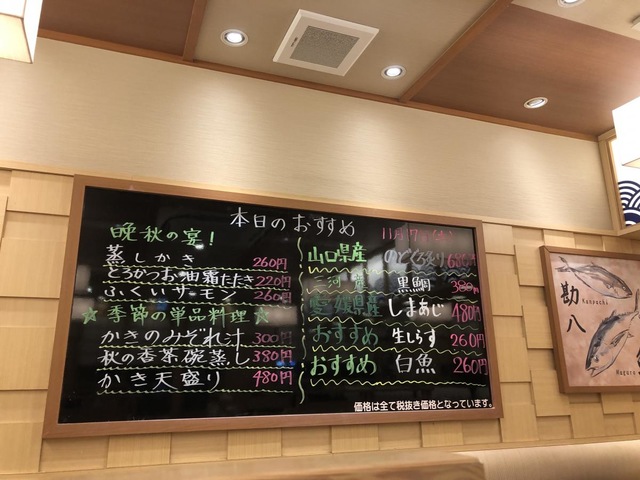 本日のおすすめ
11月7日
晩秋の宴!
蒸しかき 260円
とろかつお油霜たたき 220円
ふくいサーモン 260円
☆季節の単品料理☆
かきのみぞれ汁 300円
秋の香茶碗蒸し 380円
かき天盛り 480円
山口県産 のどぐろ炙り 680円
黒鯛 380円
愛媛県産 しまあじ 480円
おすすめ 生しらす 260円
おすすめ 白魚 260円
価格は全て税抜き価格となっています。
勘八
Kanpachi
Maguro